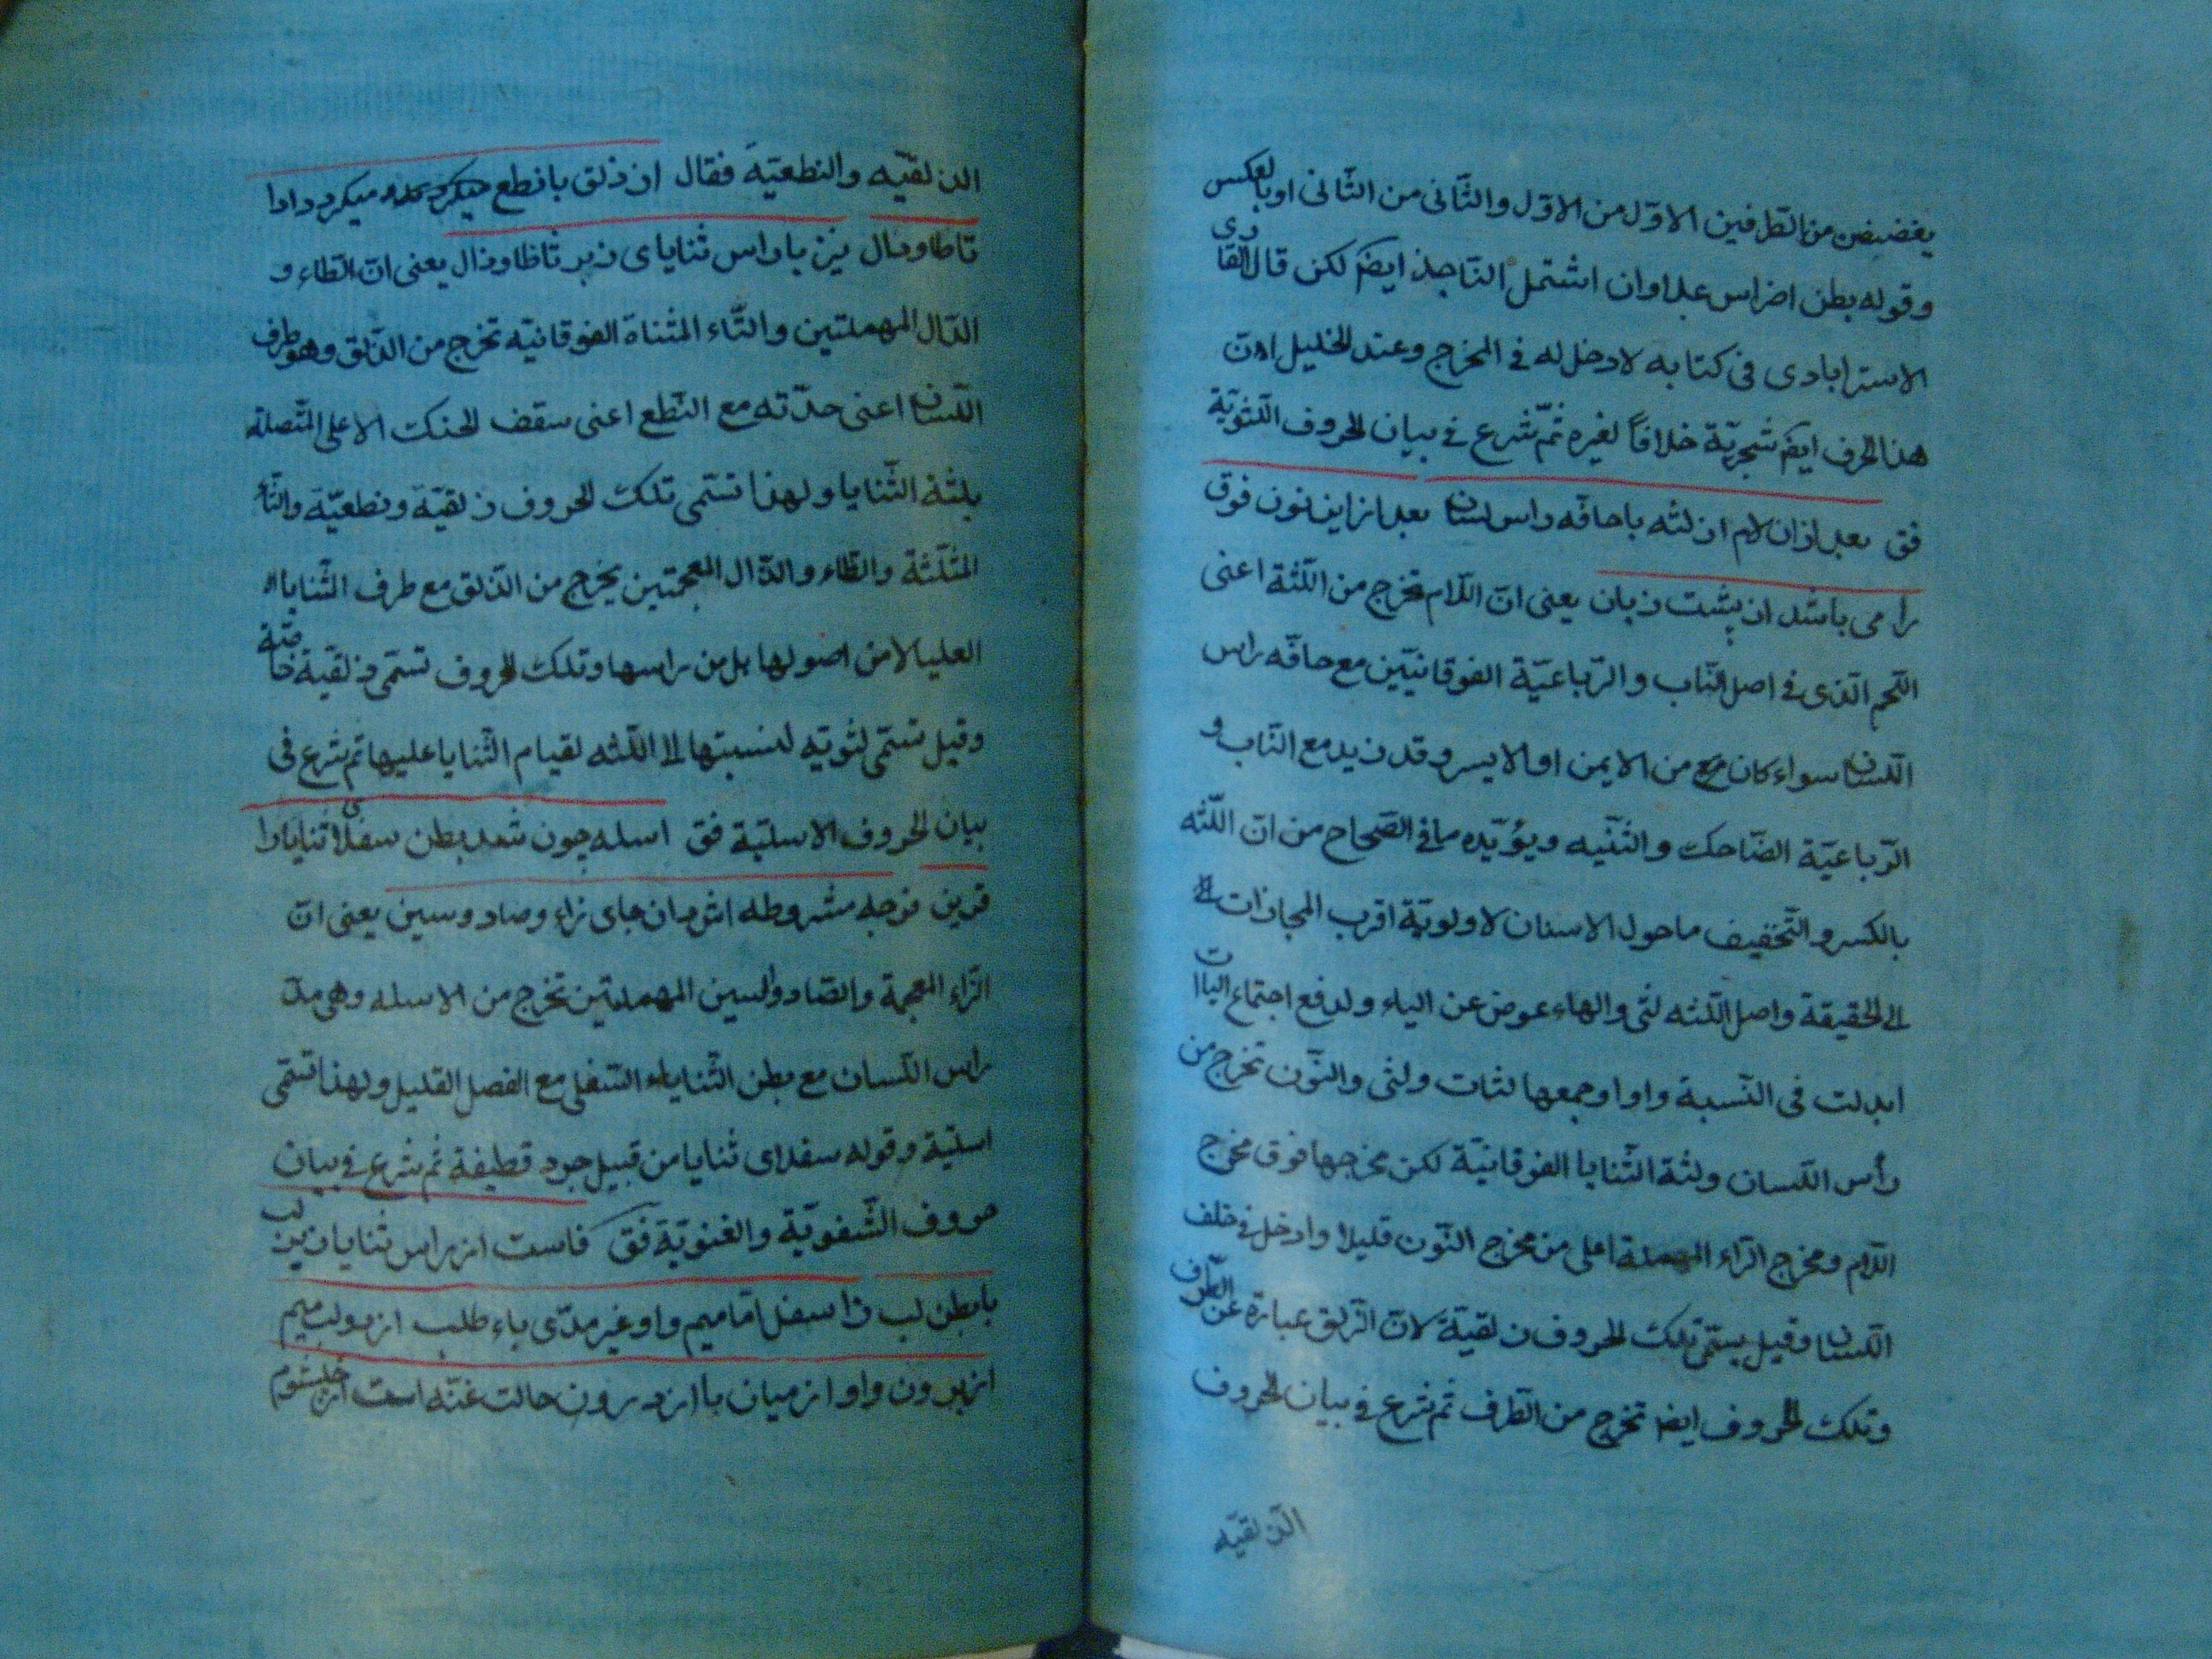 من الطرفين الاوّل من الاوّل والثّانی من الثّانی او بالعکس
وقوله بطن اضراس علیا وان اشتمل النّاجذ ایضًا لکن قال القاری
الاسترابادی فی کتابه لا دخل له فی المخرج وعند الخلیل انّ
هذا الحرف ایضًا شجریّة خلافاً لغیره ثمّ شرع فی بیان الحروف اللّثویّة
فق بعد ازان لام از لثه با حافّه راس لسان بعد ازاین نون فوق
را می باشد از پشت زبان یعنی انّ اللّام تخرج من اللّثة اعنی
اللّحم الّذی فی اصل النّاب والرّباعیّة الفوقانیّتین مع حافّه راس
اللّسان سواء کان من الایمن او الایسر وقد زید مع النّاب و
الرّباعیّة الضّاحک والثّنیه ویؤیّده ما فی الصّحاح من انّ اللّثه
بالکسر والتّخفیف ما حول الاسنان لاولویّة اقرب المجازات
الی الحقیقة واصل اللّثه لثی والهاء عوض عن الیاء ولدفع اجتماع الیاات
ابدلت فی النّسبة واوا وجمعها لثات ولثی والنّون تخرج من
رأس اللّسان ولثة الثّنایا الفوقانیّة لکن مخرجها فوق مخرج
اللّام ومخرج الرّاء المهملة اعلی من مخرج النّون قلیلا وادخل فی خلف
اللّسان وقیل یسمّی تلک الحروف ذلقیّة لانّ الذّلق عبارة عن الطّرف
وتلک الحروف ایضا تخرج من الطّرف ثمّ شرع فی بیان الحروف
الذلقیّه
الذلقیّه والنطعیّة فقال از ذلق با نطع میکرد دادا
تا طا و دال نیز با راس ثنایای زبر ثا ظا و ذال یعنی انّ الطّاء و
الدّال المهملتین والتّاء المثناة الفوقانیّه تخرج من الذّلق وهو طرف
اللّسان اعنی حدّته مع النّطع اعنی سقف الحنک الاعلی المتّصلة
بلثة الثّنایا ولهذا تسمّی تلک الحروف ذلقیّة ونطعیّة والثّاء
المثلّثة والظّاء والذّال المعجمتین یخرج من الذّلق مع طرف الثّنایا
العلیا لا من اصولها بل من راسها وتلک الحروف تسمّی ذلقیّة خاصّة
وقیل تسمّی لثویّه لنسبتها الی اللّثه لقیام الثّنایا علیها ثم شرع فی
بیان الحروف الاسلیّة فق اسله چون شد بطن سفلای ثنایا را
قرین فرجه مشروطه اش دان جای زاء وصاد وسین یعنی انّ
الزّاء المعجمة والصّاد والسین المهملتین تخرج من الاسله وهی
راس اللّسان مع بطن الثّنایاء السّفلی مع الفصل القلیل ولهذا تسمّی
اسلیّة وقوله سفلای ثنایا من قبیل جرد قطیفة ثم شرع فی بیان
حروف الشّفویّة والغنویّة فق فاست از راس ثنایا زبرین لب
با بطن لب زاسفل امّا میم واو غیر مدّی باء طلب از دو لب میم
از برون واو از میان با از درون حالت غنّه است از خیشوم